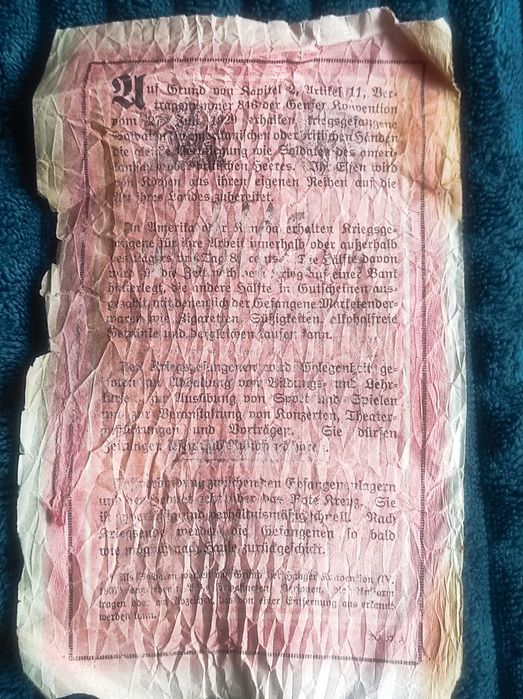 Auf Grund von Kapitel 2, Artikel 11, Ver-
tragsnummer 846 der Genfer Konvention
vom 27. Juli 1929 erhalten kriegsgefangene
Soldaten in amerikanischen oder britischen Händen
die gleiche Verpflegung wie Soldaten des ameri-
kanischen oder britischen Heeres. Ihr Essen wird
von Köchen aus ihren eigenen Reihen auf die
Art ihres Landes zubereitet.
In Amerika oder Kanada erhalten Kriegsge-
fangene für ihre Arbeit innerhalb oder außerhalb
des Lagers pro Tag 80 cents. Die Hälfte davon
wird für die Zeit nach dem Krieg auf einer Bank
hinterlegt, die andere Hälfte in Gutscheinen aus-
gezahlt, mit denen sich der Gefangene Marketender-
waren wie Zigaretten, Süßigkeiten, alkoholfreie
Getränke und dergleichen kaufen kann.
Den Kriegsgefangenen wird Gelegenheit ge-
boten zur Abhaltung von Bildungs- und Lehr-
kursen, zur Ausübung von Sport und Spielen
und zur Veranstaltung von Konzerten, Theater-
aufführungen und Vorträgen. Sie dürfen
Zeitungen lesen und Radio hören.
Die Verbindung zwischen den Gefangenenlagern
und der Heimat geht über das Rote Kreuz. Sie
ist zuverlässig und verhältnismäßig schnell. Nach
Kriegsende werden die Gefangenen so bald
wie möglich nach Hause zurückgeschickt.
Als Soldaten werden auf Grund der Haager Konvention (IV,
1907) angesehen: Alle bewaffneten Personen, die Uniform
tragen oder ein Abzeichen, das von einer Entfernung aus erkannt
werden kann.